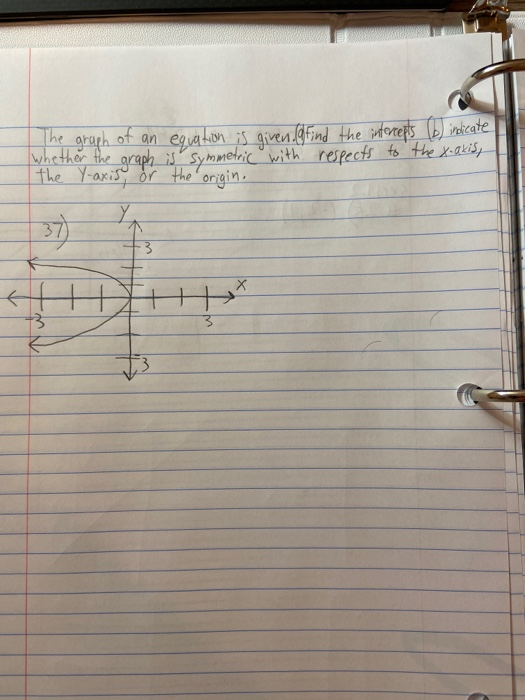 The graph of an equation is given. (a) Find the intercepts (b) indicate
whether the graph is symmetric with respects to the x-axis,
the Y-axis, or the origin.
37)
y
3
x
-3
3
-3